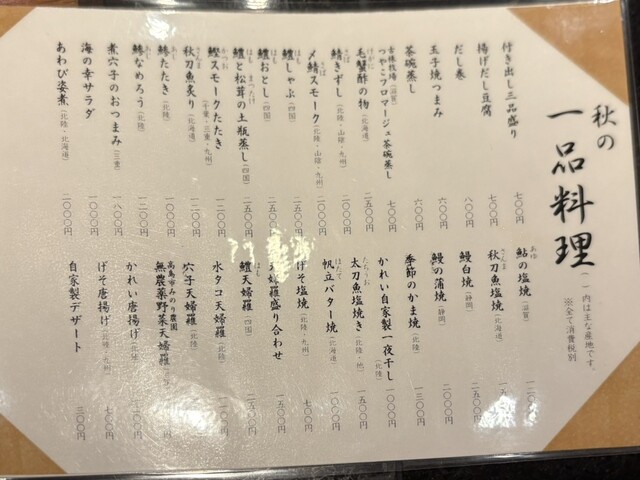 秋の
一品料理
（ ）内は主な産地です。
※全て消費税別
付き出し三品盛り 七〇〇円
揚げだし豆腐 七〇〇円
だし巻 八〇〇円
玉子焼つまみ 六〇〇円
茶碗蒸し 六〇〇円
古株牧場（滋賀）
つやこフロマージュ茶碗蒸し 七〇〇円
毛蟹酢の物（北海道） 二五〇〇円
鯖きずし（北陸・山陰・九州） 二〇〇〇円
〆鯖スモーク（北陸・山陰・九州） 二〇〇〇円
鱧しゃぶ（四国） 二五〇〇円
鱧おとし（四国） 二五〇〇円
鱧と松茸の土瓶蒸し（四国） 二五〇〇円
鰹スモークたたき（千葉・三重・九州） 一二〇〇円
秋刀魚炙り（北海道） 一二〇〇円
鯵たたき（北陸） 一〇〇〇円
鯵なめろう（北陸） 一二〇〇円
煮穴子のおつまみ（三重） 一八〇〇円
海の幸サラダ 一〇〇〇円
あわび姿煮（北陸・北海道） 二〇〇〇円
鮎の塩焼（滋賀）
秋刀魚塩焼（北海道）
鰻白焼（静岡） 二五〇〇円
鰻の蒲焼（静岡） 二〇〇〇円
季節のかま焼（北陸） 一三〇〇円
かれい自家製一夜干し（北陸） 一〇〇〇円
太刀魚塩焼き（北陸・他） 一五〇〇円
帆立バター焼（北海道） 一〇〇〇円
げそ塩焼（北陸・九州） 七〇〇円
天婦羅盛り合わせ 一五〇〇円
鱧天婦羅（四国） 二五〇〇円
水タコ天婦羅（北陸） 一二〇〇円
穴子天婦羅（北陸） 一八〇〇円
高島市みのり農園
無農薬野菜天婦羅 一五〇〇円
かれい唐揚げ（北陸） 一二〇〇円
げそ唐揚げ（北陸・九州） 七〇〇円
自家製デザート 三〇〇円